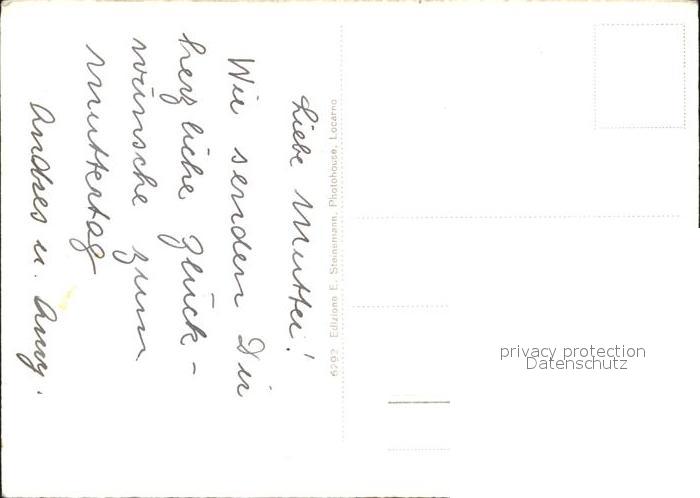 Liebe Mutter!
Wir senden Dir
herzliche Glück-
wünsche zum
Muttertag
Andres u. Anny.
6292 Edizione E. Steinemann, Photohouse, Locarno
privacy protection
Datenschutz